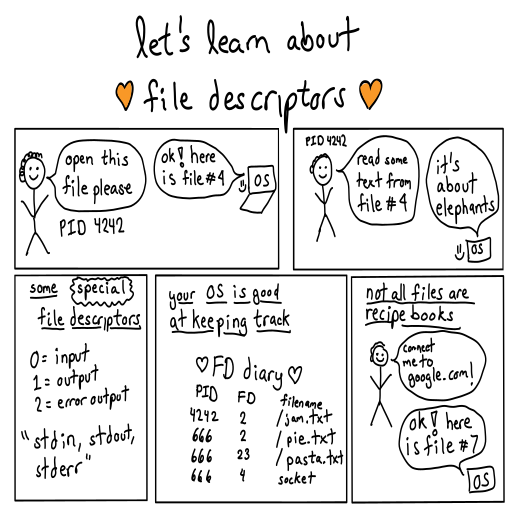 let's learn about
file descriptors
open this
file please
PID 4242
ok! here
is file #4
OS
PID 4242
read some
text from
file #4
it's
about
elephants
OS
some special
file descriptors
0 = input
1 = output
2 = error output
"stdin, stdout,
stderr"
your OS is good
at keeping track
♡ FD diary ♡
PID FD filename
4242 2 /jam.txt
666 2 /pie.txt
666 23 /pasta.txt
666 4 socket
not all files are
recipe books
connect
me to
google.com!
ok! here
is file #7
OS